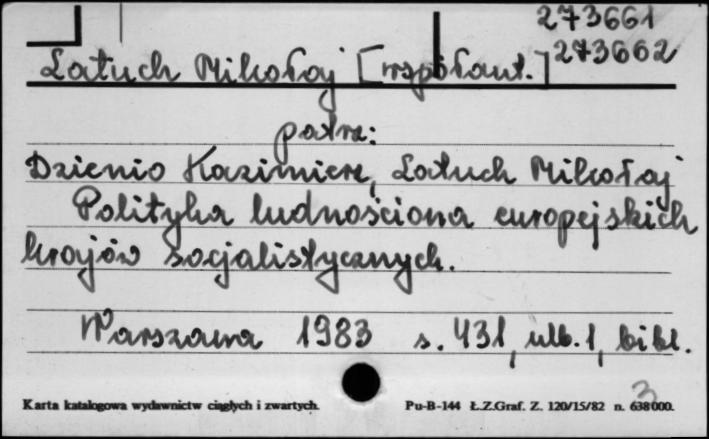 273661
Latuch Mikołaj [współaut.] 273662
patrz:
Dzienio Kazimierz, Latuch Mikołaj
Polityka ludnościowa europejskich
krajów socjalistycznych.
Warszawa 1983 s. 431, nlb. 1, bibl.
3
Karta katalogowa wydawnictw ciągłych i zwartych. Pu-B-144 Ł.Z.Graf. Z. 120/15/82 n. 638000.